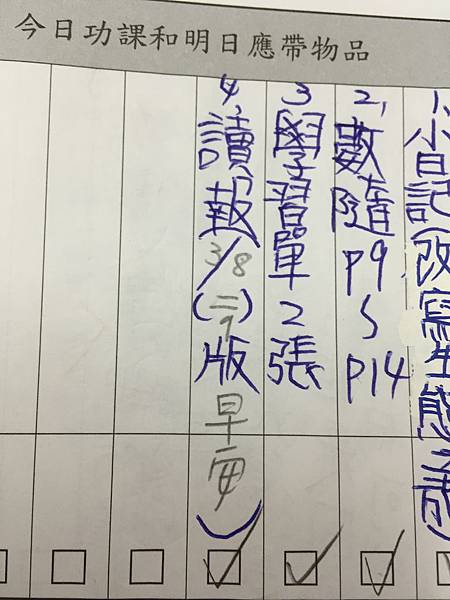 今日功課和明日應帶物品
1、小日記(改寫生態之旅)
2、數隨P9~P14
3 學習單2張
4、讀報3/8(二)9版早安